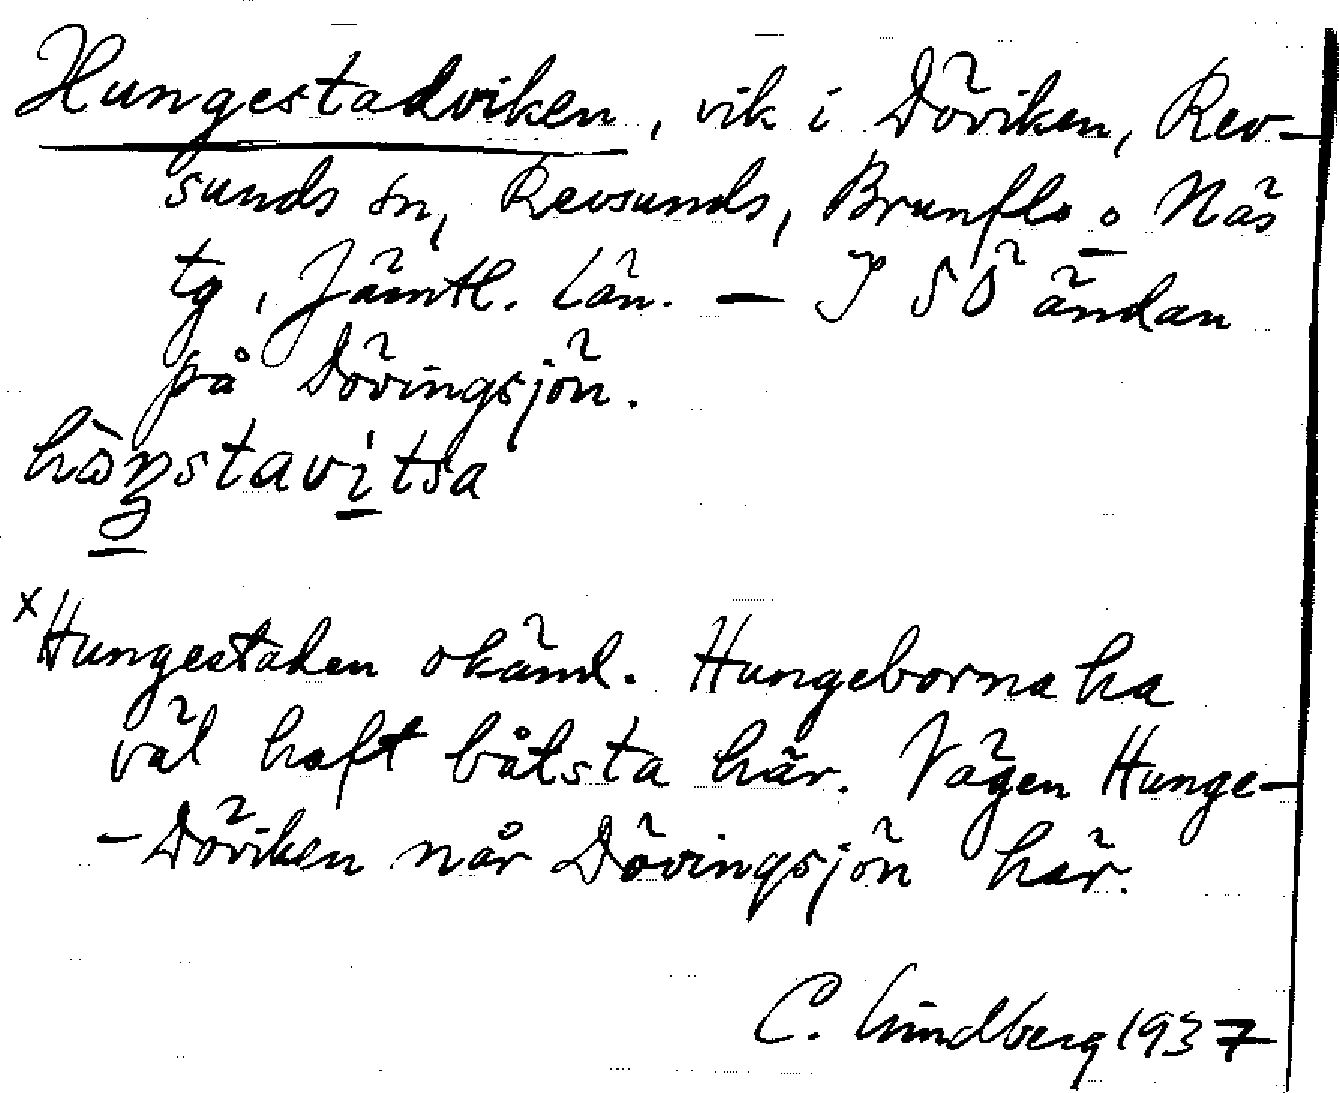 Hungestadviken, vik i Döviken, Rev-
sunds sn, Revsunds, Brunflo o Näs
tg, Jämtl. län. — I SÖ ändan
på Dövingsjön.
x Hungestaden okänd. Hungeborna ha
väl haft båtsta här. Vägen Hunge-
-Döviken når Dövingsjön här.
C. Lindberg 1937